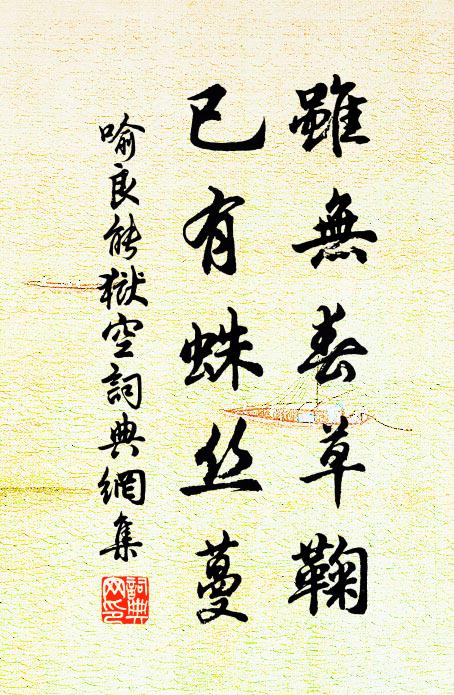 雖無春草鞠
已有蛛丝蔓
喻良能獄空詞典網集
詞典网印